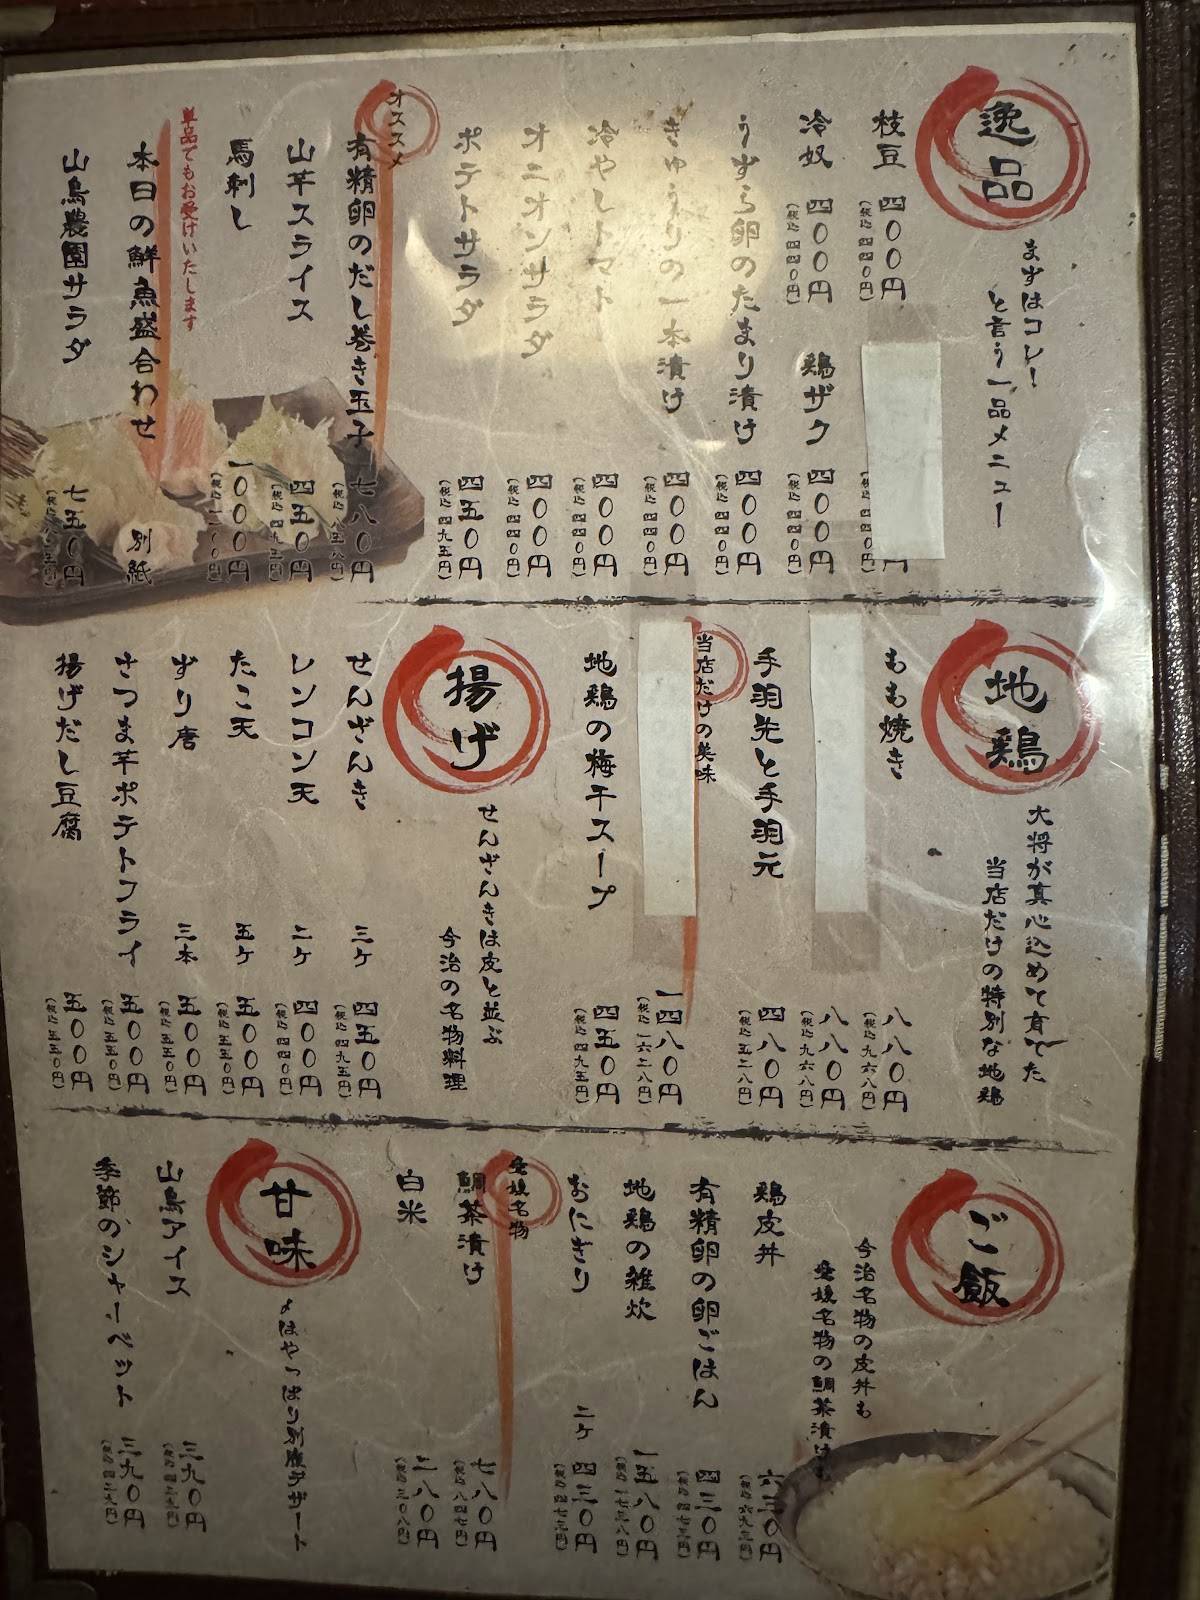 逸品
まずはコレ!
と言う一品メニュー
枝豆
四〇〇円
(税込 四四〇円)
冷奴
四〇〇円
(税込 四四〇円)
鶏ザク
四〇〇円
(税込 四四〇円)
うずら卵のたまり漬け
四〇〇円
(税込 四四〇円)
きゅうりの一本漬け
四〇〇円
(税込 四四〇円)
冷やしトマト
四〇〇円
(税込 四四〇円)
オニオンサラダ
四〇〇円
(税込 四四〇円)
ポテトサラダ
四五〇円
(税込 四九五円)
オススメ
有精卵のだし巻き玉子
七八〇円
(税込 八五八円)
山芋スライス
四五〇円
(税込 四九五円)
馬刺し
一〇〇〇円
(税込 一一〇〇円)
単品でもお受けいたします
本日の鮮魚盛合わせ
別紙
山鳥農園サラダ
七五〇円
(税込 八二五円)
地鶏
大将が真心込めて育てた
当店だけの特別な地鶏
もも焼き
八八〇円
(税込 九六八円)
八八〇円
(税込 九六八円)
手羽先と手羽元
四八〇円
(税込 五二八円)
当店だけの美味
一四八〇円
(税込 一六二八円)
地鶏の梅干スープ
四五〇円
(税込 四九五円)
揚げ
せんざんきは皮と並ぶ
今治の名物料理
せんざんき
三ケ
四五〇円
(税込 四九五円)
レンコン天
二ケ
四〇〇円
(税込 四四〇円)
たこ天
五ケ
五〇〇円
(税込 五五〇円)
ずり唐
三本
五〇〇円
(税込 五五〇円)
さつま芋ポテトフライ
五〇〇円
(税込 五五〇円)
揚げだし豆腐
五〇〇円
(税込 五五〇円)
ご飯
今治名物の皮丼も
愛媛名物の鯛茶漬けも
鶏皮丼
六三〇円
(税込 六九三円)
有精卵の卵ごはん
四三〇円
(税込 四七三円)
地鶏の雑炊
一五八〇円
(税込 一七三八円)
おにぎり
二ケ
四三〇円
(税込 四七三円)
愛媛名物
鯛茶漬け
七八〇円
(税込 八四七円)
白米
二八〇円
(税込 三〇八円)
甘味
〆はやっぱり別腹デザート
山鳥アイス
三九〇円
(税込 四二九円)
季節のシャーベット
三九〇円
(税込 四二九円)